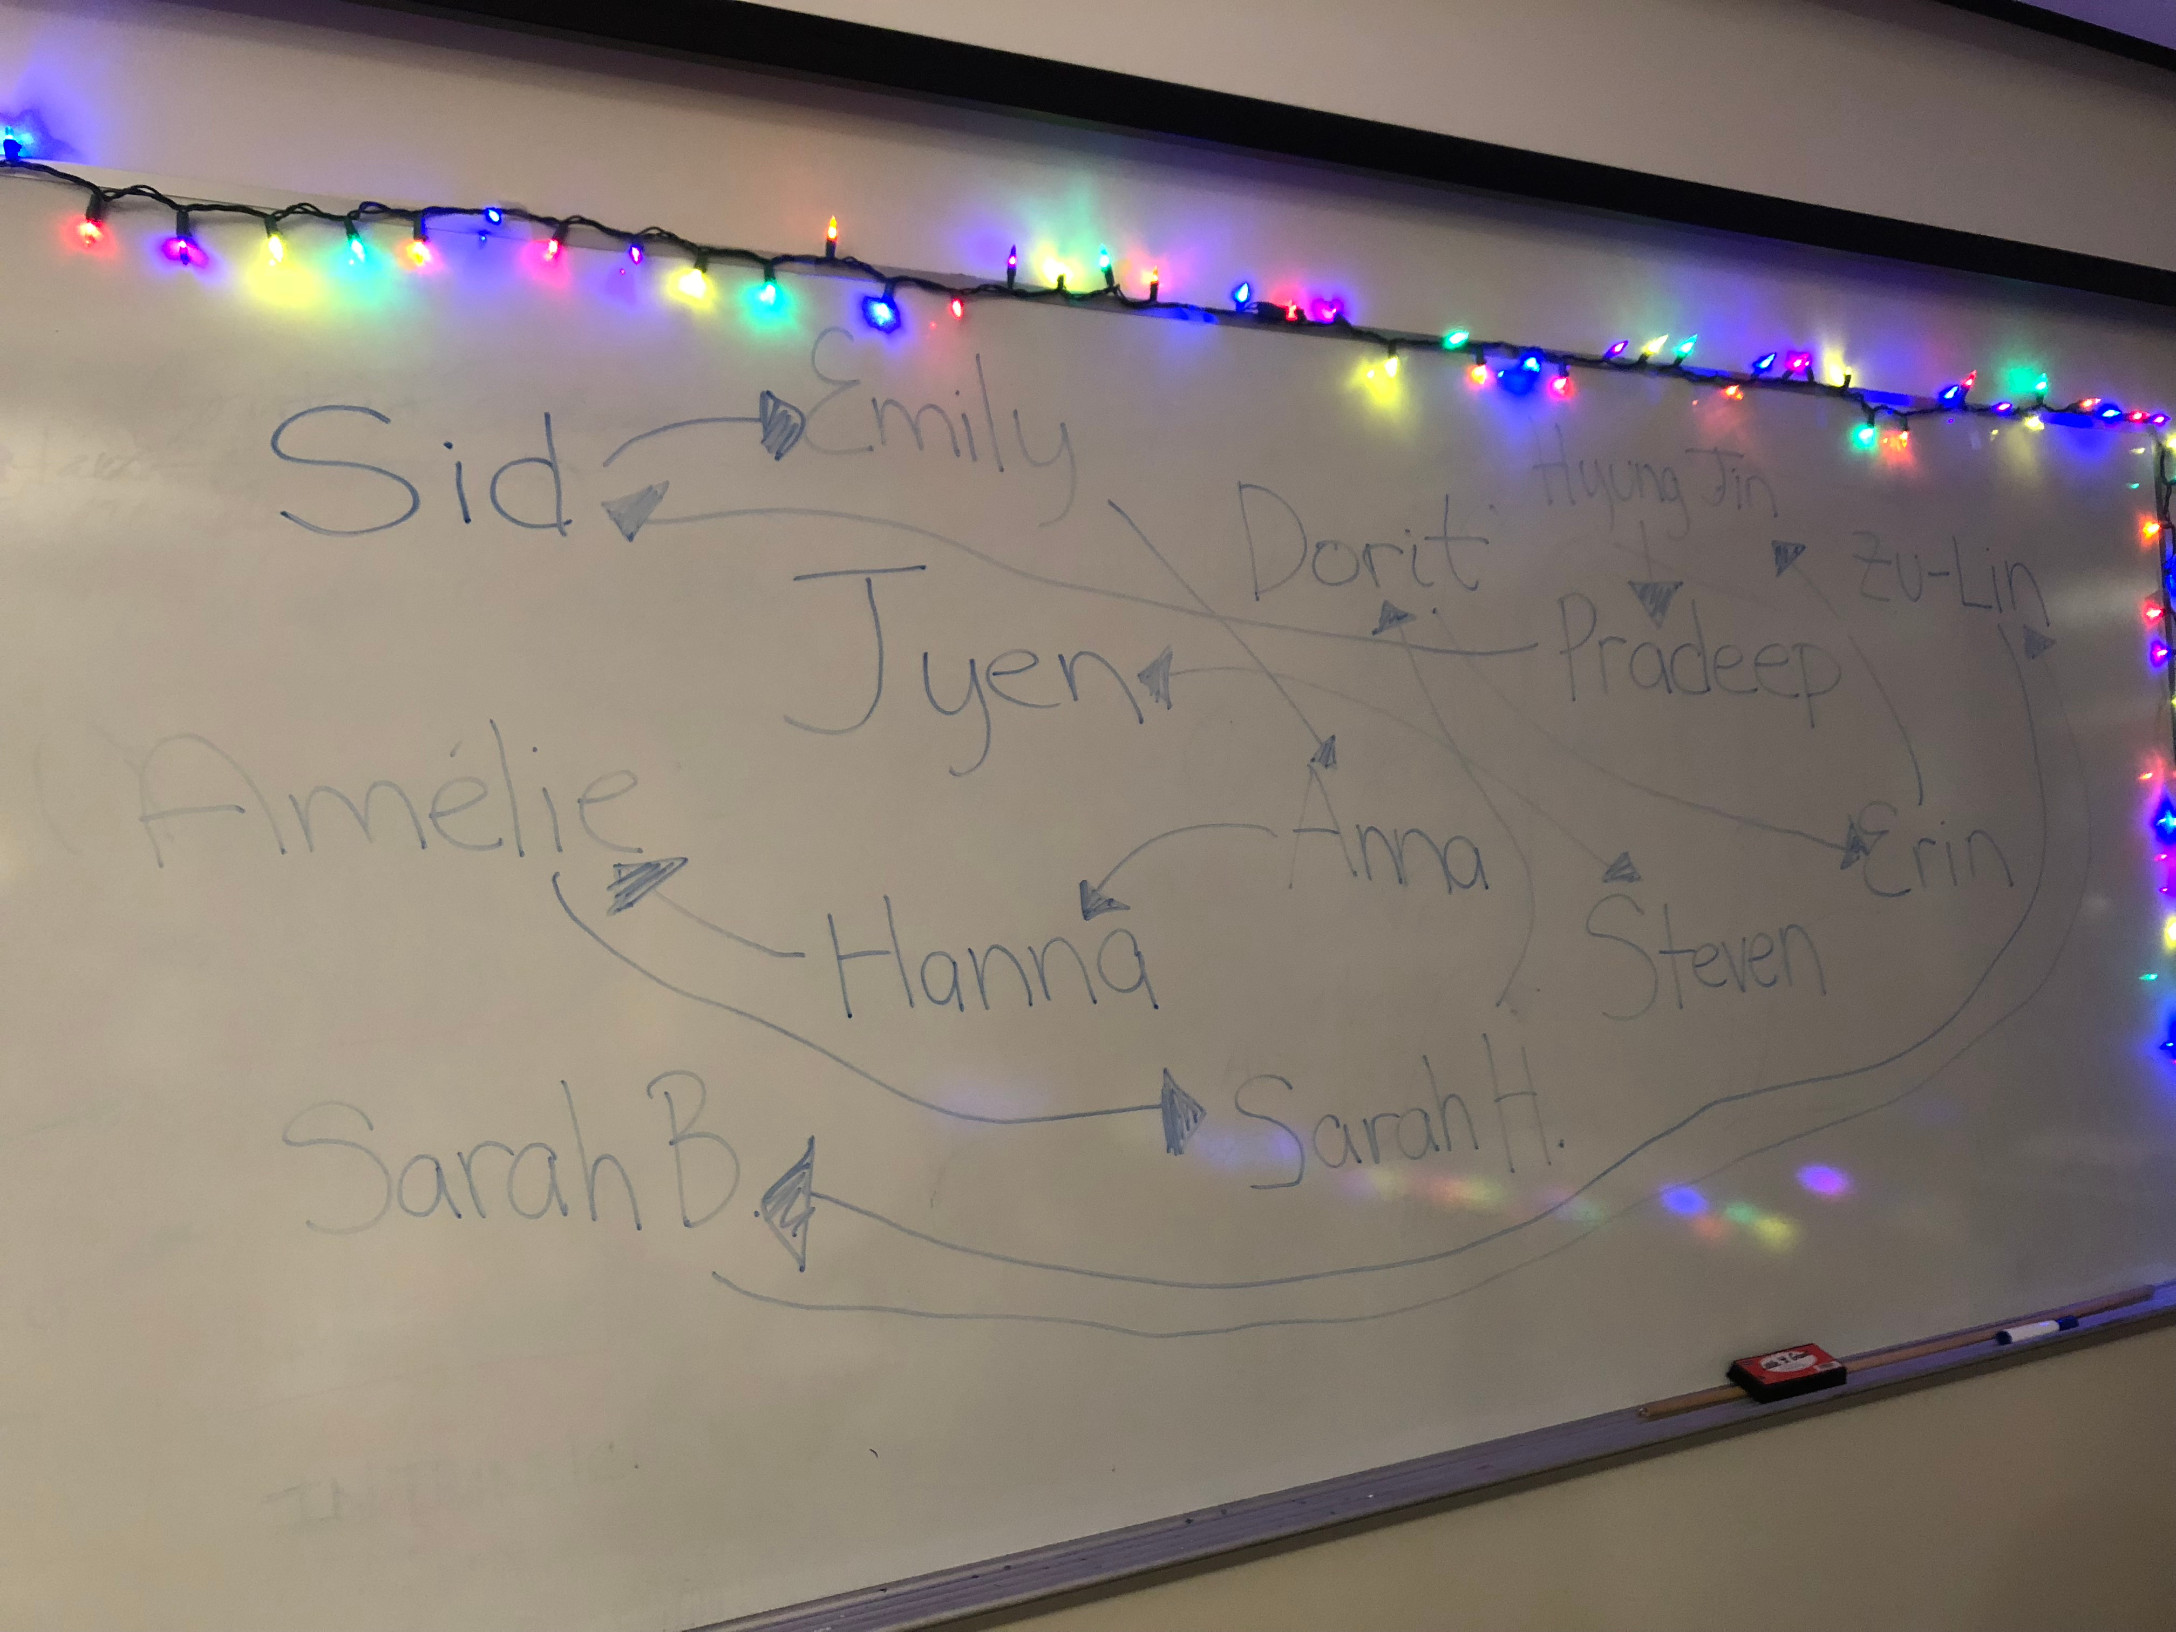 Sid
Emily
Hyung Jin
Dorit
Zu-Lin
Jyen
Pradeep
Amélie
Anna
Erin
Hanna
Steven
Sarah B.
Sarah H.